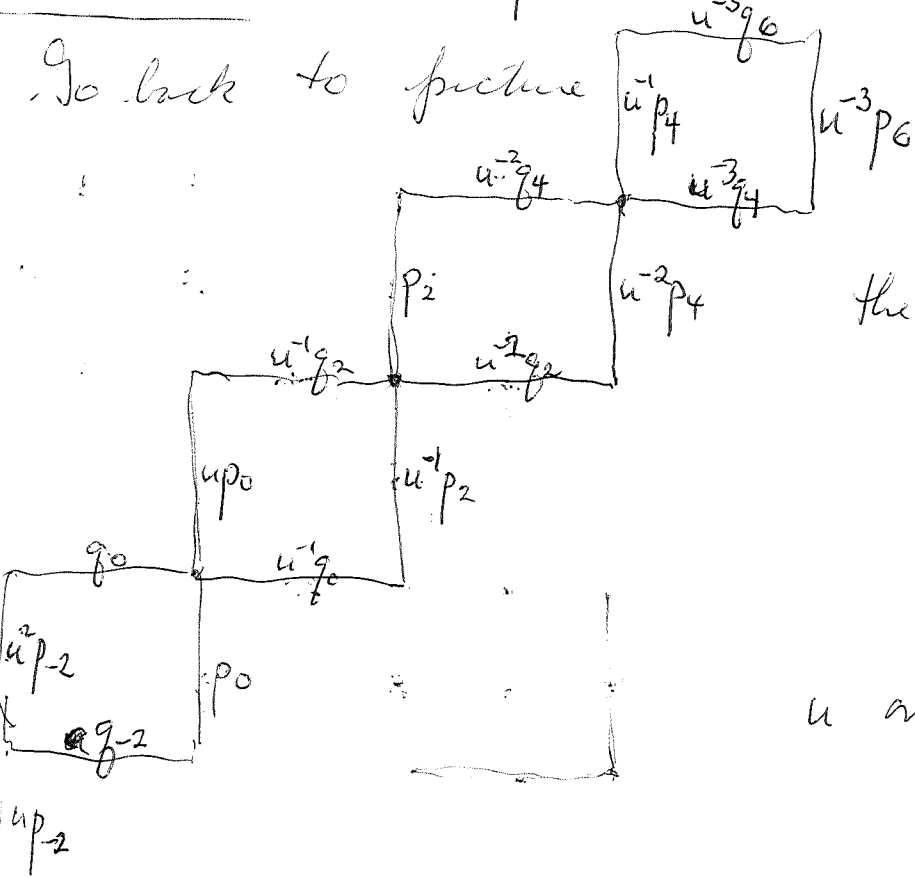 u⁻³q₆
Go back to picture
u⁻¹p₄
u⁻³p₆
u⁻²q₄
u⁻³q₄
p₂
u⁻²p₄
the
u⁻¹q₂
u⁻²q₂
up₀
u⁻¹p₂
q₀
u⁻¹q₀
u²p₋₂
p₀
q₋₂
u
up₋₂